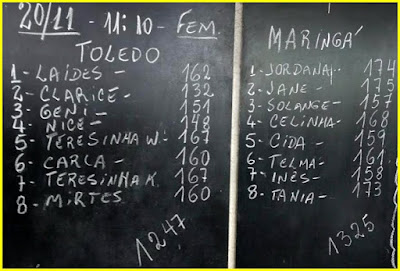 20/11 - 11:10 - FEM.
TOLEDO
1 - LAÍDES - 162
2 - CLARICE - 132
3 - GENI - 151
4 - NICE - 148
5 - TERESINHA W. - 167
6 - CARLA - 160
7 - TERESINHA K. 167
8 - MIRTES 160
1247
MARINGÁ
1 - JORDANA - 174
2 - JANE - 175
3 - SOLANGE - 157
4 - CELINHA - 168
5 - CIDA - 159
6 - TELMA - 161
7 - INÊS - 158
8 - TANIA - 173
1325